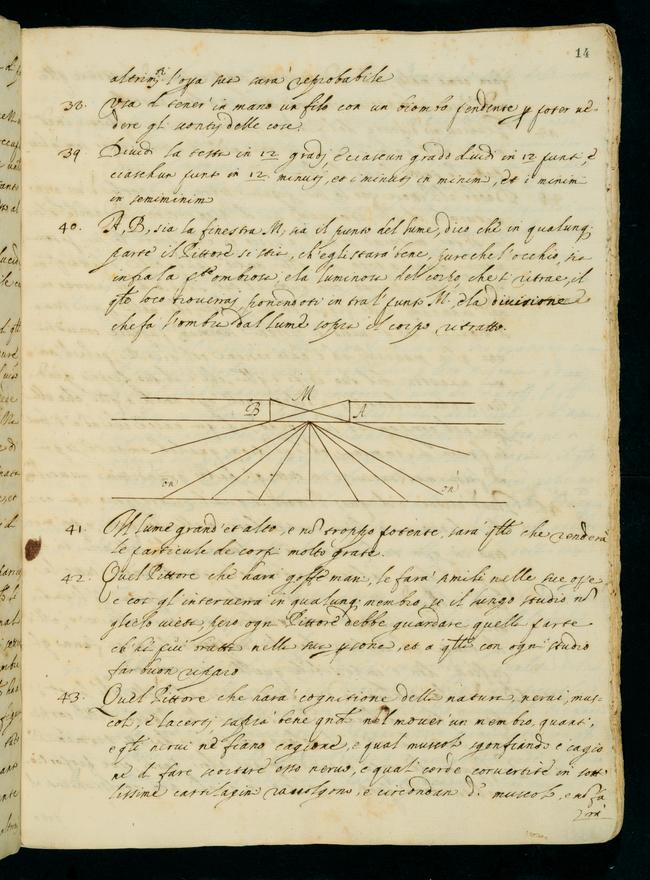 14
altrim.te l'opa sua sarà reprobabile
38. Usa di tener in mano un filo con un biombo pendente p poter ve=
dere gl' scontri delle cose.
39 Dividi la testa in 12 gradi, e ciascun grado dividi in 12 punti, e
ciaschun punto in 12 minuti, et i minuti in minimi, et i minimi
in semiminimi
40. A, B, sia la finestra M, sia il punto del lume, dico che in qualunq;
parte il Pittore si stia, ch'egli starà bene, pure che l'occhio, sia
infra la pte ombrosa, e la luminosa del corpo, che si ritrae, il
qlo loco troverrai, ponendoti in tra'l punto M, e la divisione
che fa l'ombra dal lume sopra il corpo ritratto.
M
B A
on on
41. Il lume grande et alto, e nō troppo potente, sarà qllo che renderà
le particule de corpi molto grate.
42. Quel Pittore che harà goffe mani, le farà simili nelle sue opre
e così gl'interverrà in qualunq; membro, se il lungo studio nō
glielo vieta, però ogni Pittore debbe guardare quella parte
ch'hà più brutta nella sua psona, et a qlla con ogni studio
far buon riparo
43. Quel Pittore che harà cognitione della natura, nervi, mus=
coli, e lacerti saprà bene nel mover un membro, quanti,
e qli nervi ne siano cagione, e qual muscolo sgonfiando è cagio
ne di fare scortare esso nervo, e quali corde convertite in sott
lissime cartilagini ravolgono, e circondano d.o muscolo, e nō fa
rà